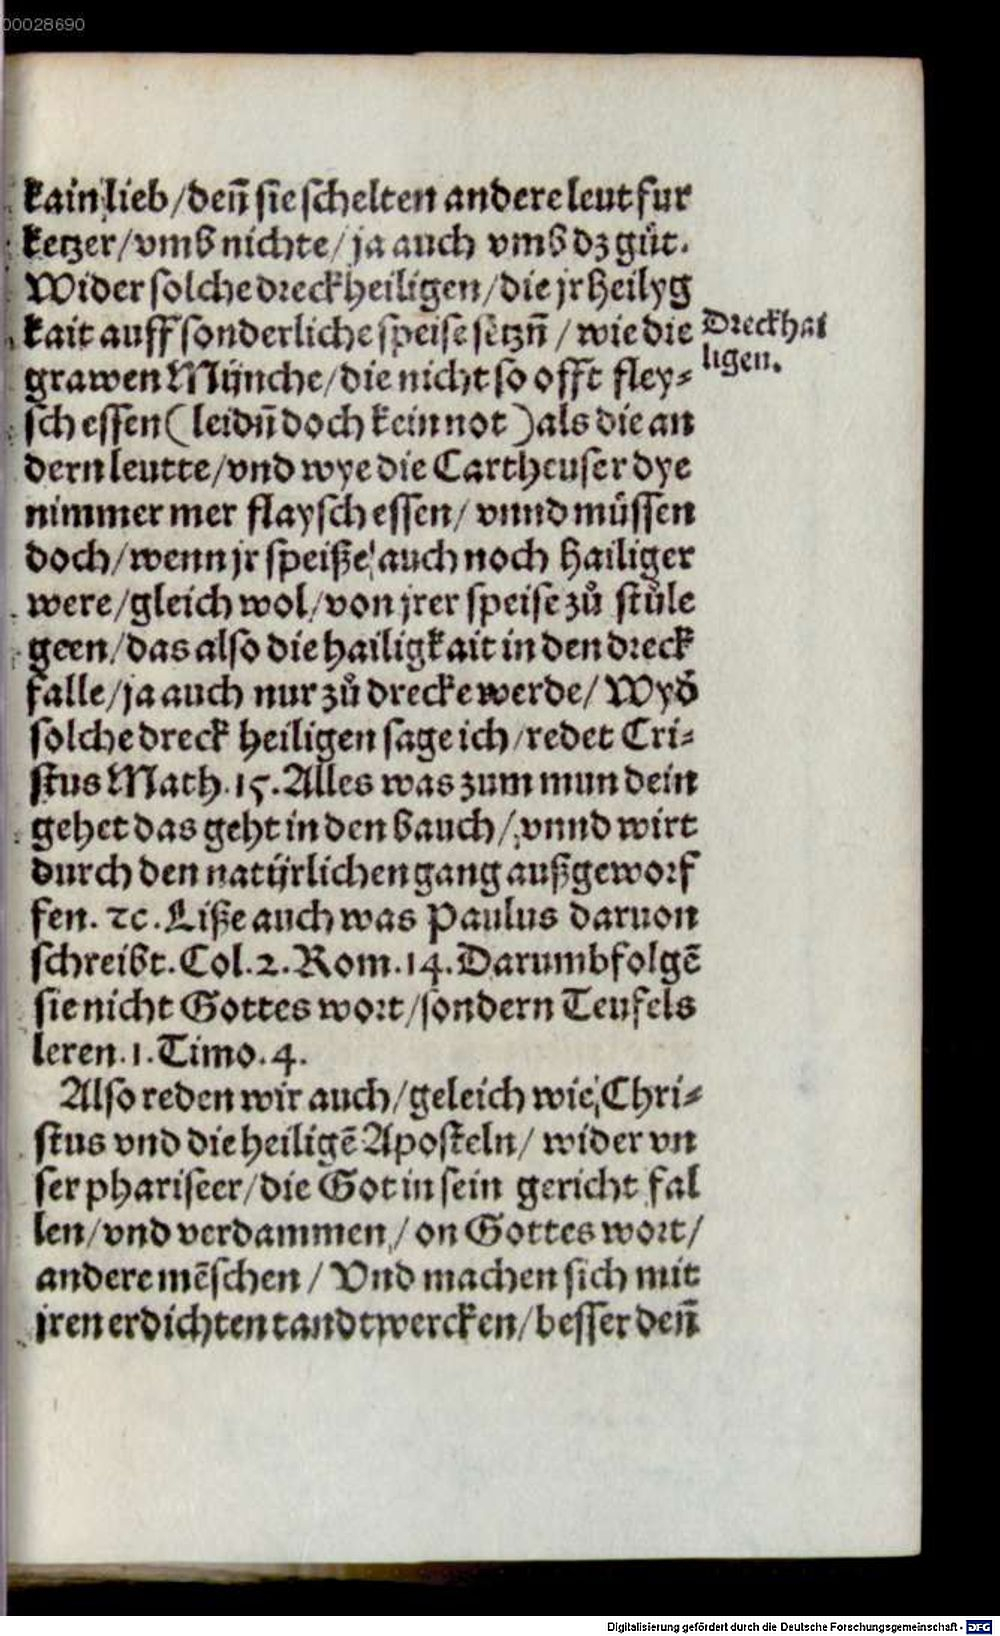 00028690
kain lieb/ deñ sie schelten andere leut fur
ketzer/ vmb nichte/ ja auch vmb dz gůt.
Wider solche dreck heiligen/ die jr heilyg
kait auff sonderliche speise setzñ / wie die
Dreckhai
ligen.
grawen Münche/ die nicht so offt fley⸗
sch essen ( leidñ doch kein not ) als die an
dern leutte/ vnd wye die Cartheuser dye
nimmer mer flaysch essen/ vnnd müssen
doch/ wenn jr speiße auch noch hailiger
were/ gleich wol/ von jrer speise zů stůle
geen/ das also die hailigkait in den dreck
falle/ ja auch nur zů drecke werde/ Wyđ
solche dreck heiligen sage ich/ redet Cri⸗
stus Math. 15. Alles was zum mun dein
gehet das geht in den bauch/ vnnd wirt
durch den natürlichen gang außgeworf
fen. ⁊c. Liße auch was Paulus daruon
schreibt. Col. 2. Rom. 14. Darumb folgē
sie nicht Gottes wort/ sondern Teufels
leren. 1. Timo. 4.
Also reden wir auch/ geleich wie Chri⸗
stus vnd die heiligē Aposteln/ wider vn
ser phariseer/ die Got in sein gericht fal
len/ vnd verdammen/ on Gottes wort/
andere mēschen / Vnd machen sich mit
jren erdichten tandtwercken/ besser deñ
Digitalisierung gefördert durch die Deutsche Forschungsgemeinschaft - DFG